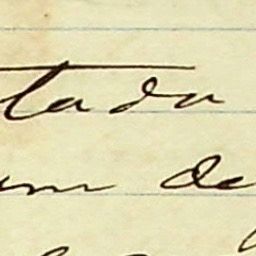 tada
um de